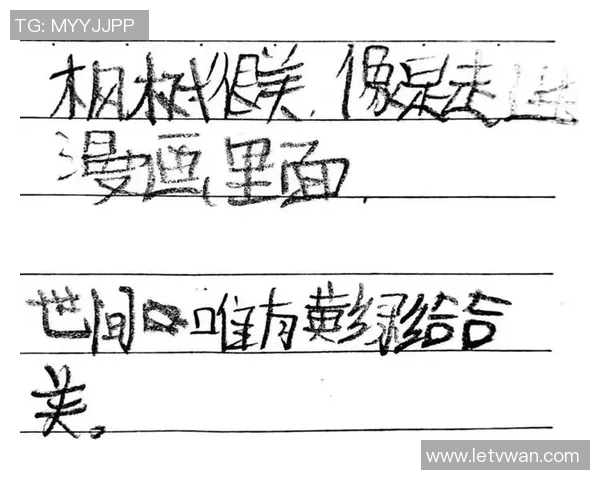 TG: MYYJJPP
枫树很美,像是走进
漫画里面.
世间唯有黄绿给合
美。
www.letvwan.com